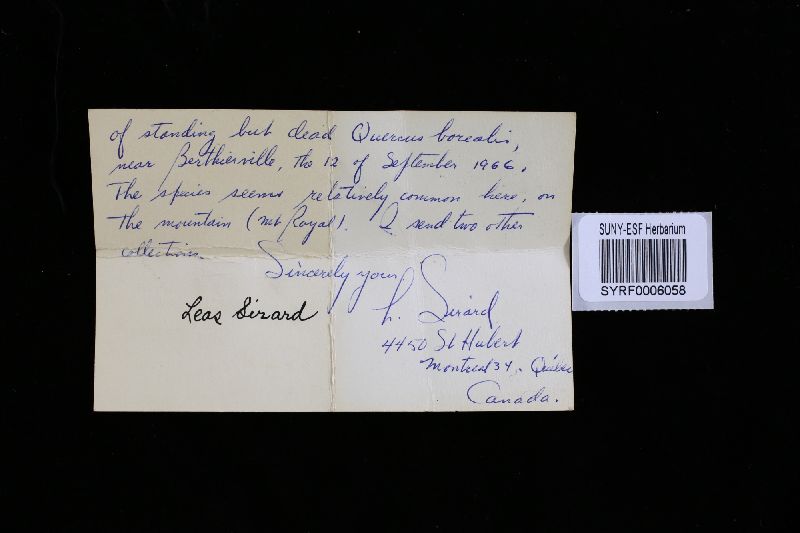 of standing but dead Quercus borealis,
near Berthierville, the 12 of September 1966.
The species seems relatively common here, on
the mountain (Mt Royal). I send two other
collections.
Sincerely yours
L. Sirard
Leas Sirard
4450 St Hubert
Montreal 34, Québec
Canada.
SUNY-ESF Herbarium
SYRF0006058